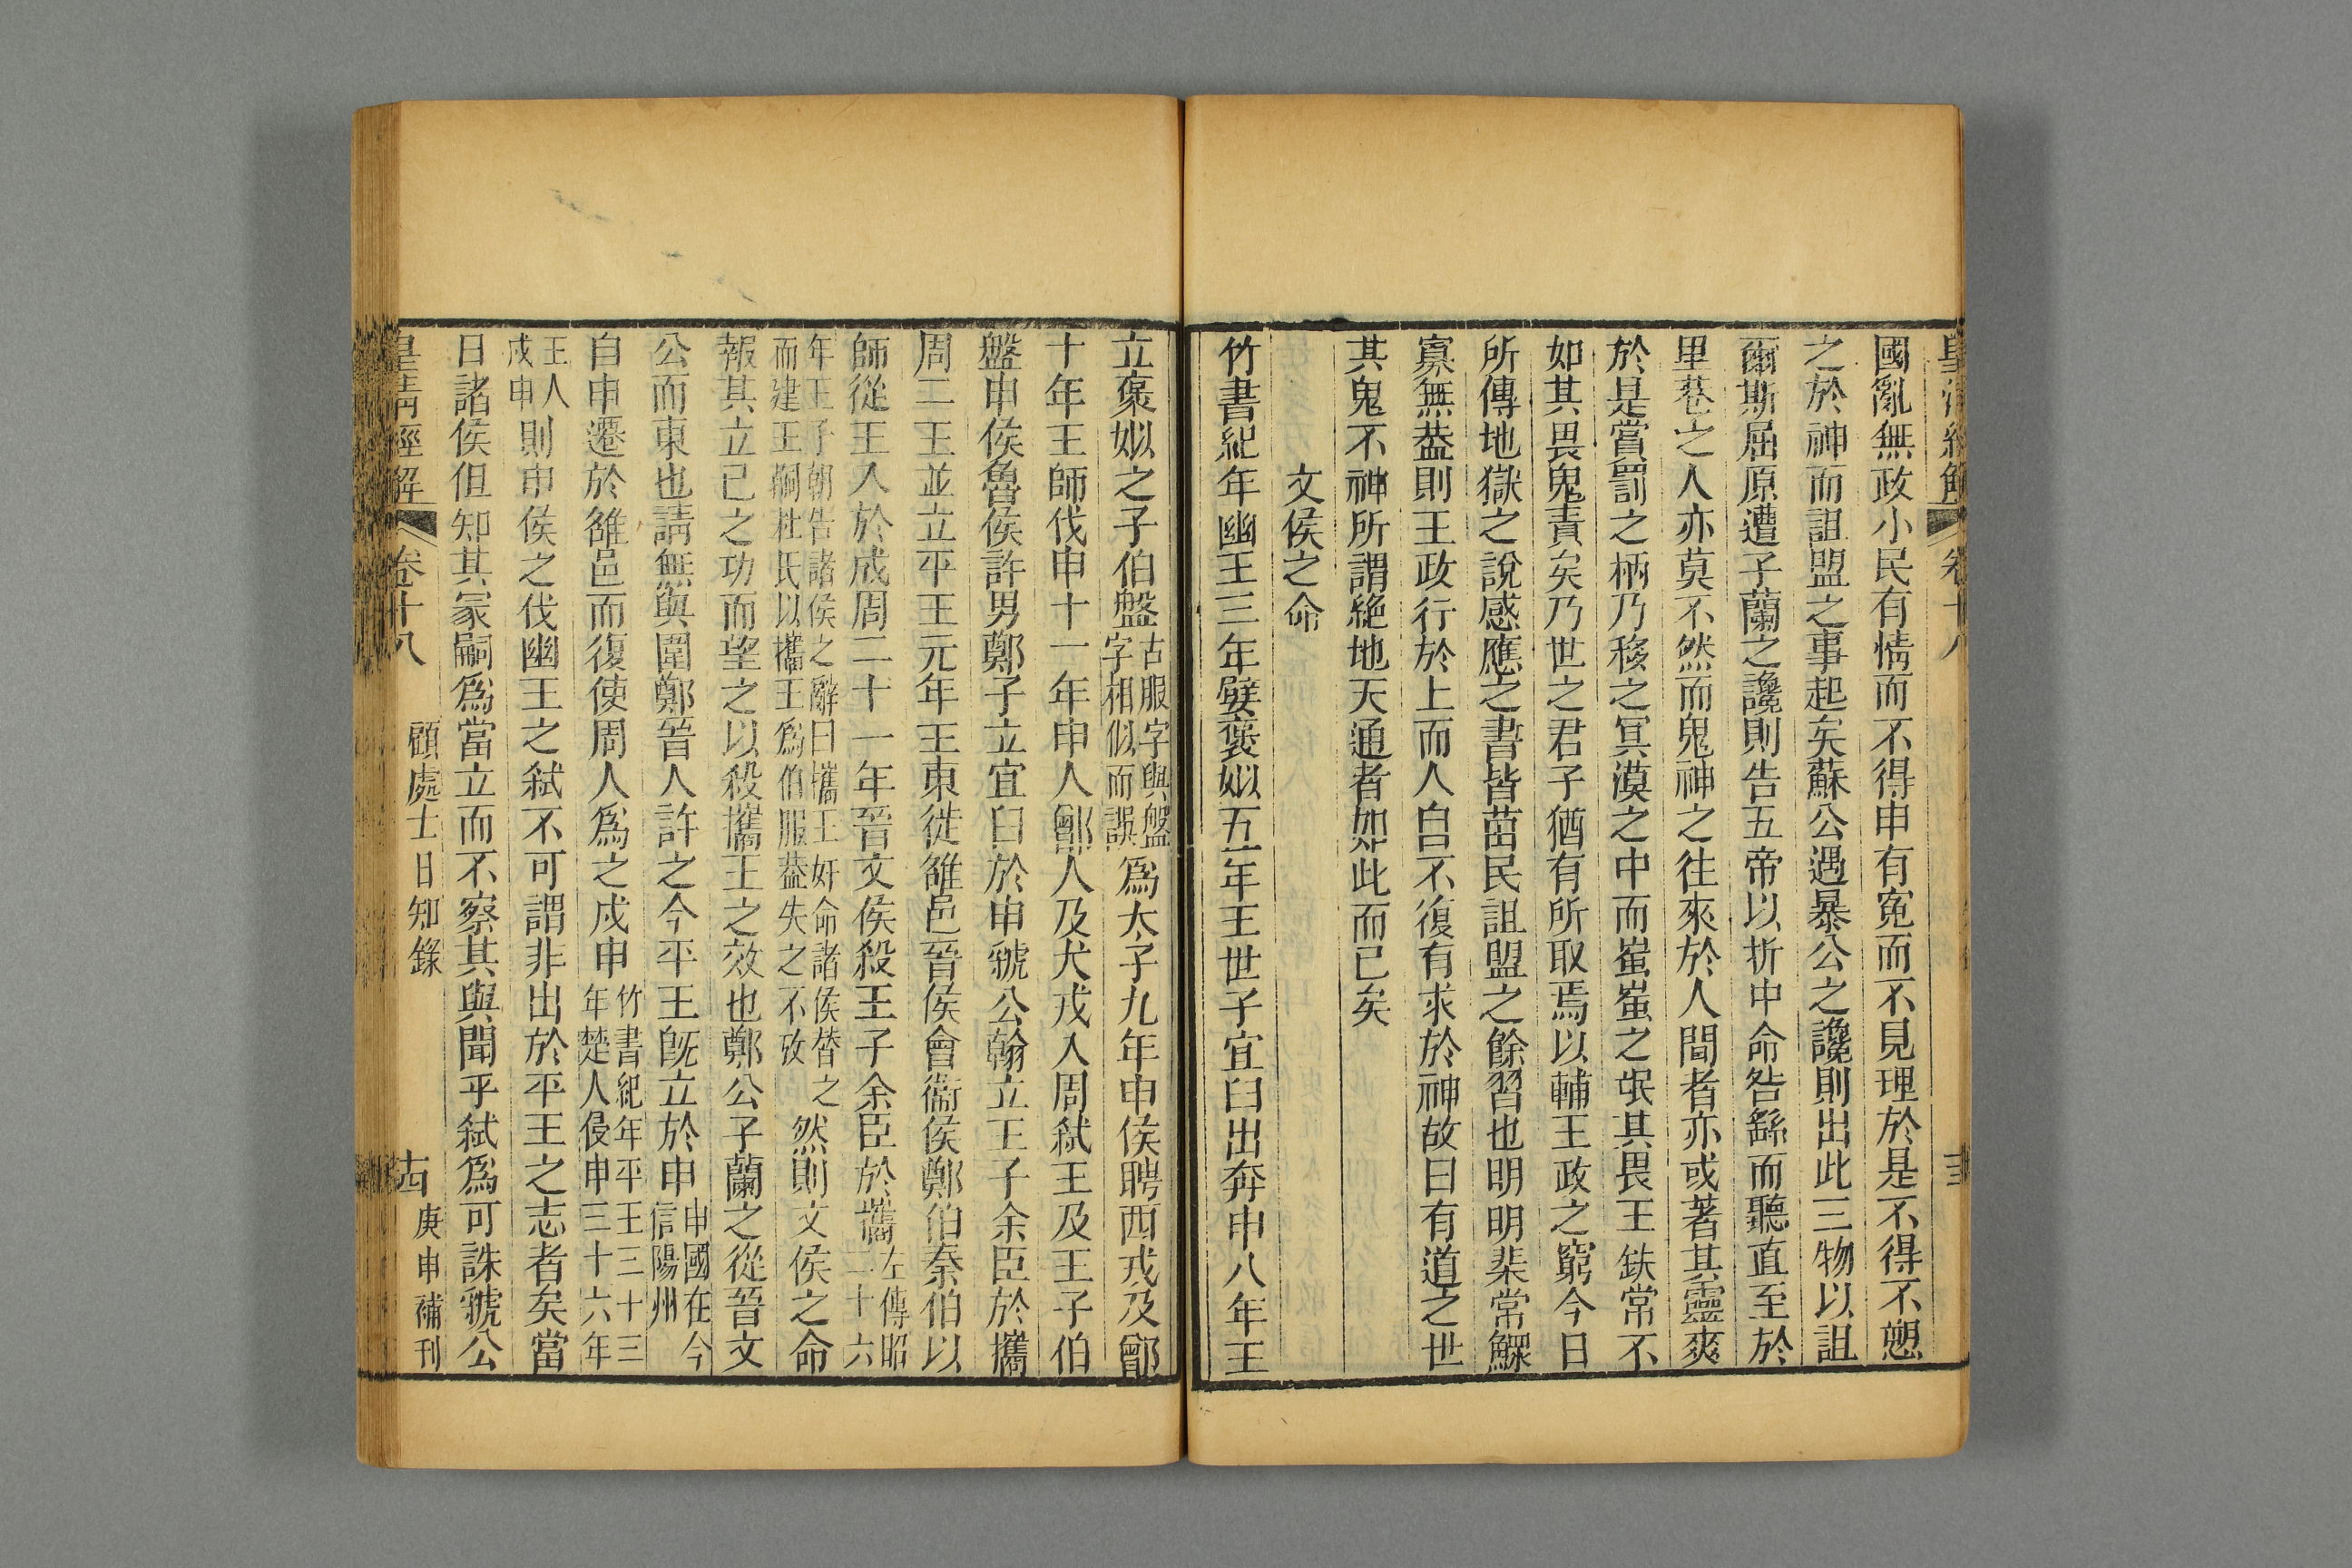 皇清經解 卷十八
國亂無政小民有情而不得申有冤而不見理於是不得不愬
之於神而詛盟之事起矣蘇公遇暴公之讒則出此三物以詛
爾斯屈原遭子蘭之讒則告五帝以折中命咎繇而聽直至於
里巷之人亦莫不然而鬼神之往來於人間者亦或著其靈爽
於是賞罰之柄乃移之冥漠之中而蚩蚩之氓其畏王鈇常不
如其畏鬼責矣乃世之君子猶有所取焉以輔王政之窮今日
所傳地獄之說感應之書皆苗民詛盟之餘習也明明棐常鰥
寡無葢則王政行於上而人自不復有求於神故曰有道之世
其鬼不神所謂絶地天通者如此而已矣
文侯之命
竹書紀年幽王三年嬖褒姒五年王世子宜臼出奔申八年王
立褒姒之子伯盤古服字與盤字相似而誤爲太子九年申侯聘西戎及鄫
十年王師伐申十一年申人鄫人及犬戎入周弑王及王子伯
盤申侯魯侯許男鄭子立宜臼於申虢公翰立王子余臣於攜
周二王並立平王元年王東徙雒邑晉侯會衞侯鄭伯秦伯以
師從王入於成周二十一年晉文侯殺王子余臣於攜左傳昭二十六
年王子朝告諸侯之辭曰攜王奸命諸侯替之而建王嗣杜氏以攜王爲伯服葢失之不攷然則文侯之命
報其立己之功而望之以殺攜王之效也鄭公子蘭之從晉文
公而東也請無與圍鄭晉人許之今平王旣立於申申國在今信陽州
自申遷於雒邑而復使周人爲之戍申竹書紀年平王三十三年楚人侵申三十六年
王人戍申則申侯之伐幽王之弑不可謂非出於平王之志者矣當
日諸侯但知其冢嗣爲當立而不察其與聞乎弑爲可誅虢公
皇清經解 卷十八 顧處士日知錄 十四 庚申補刊